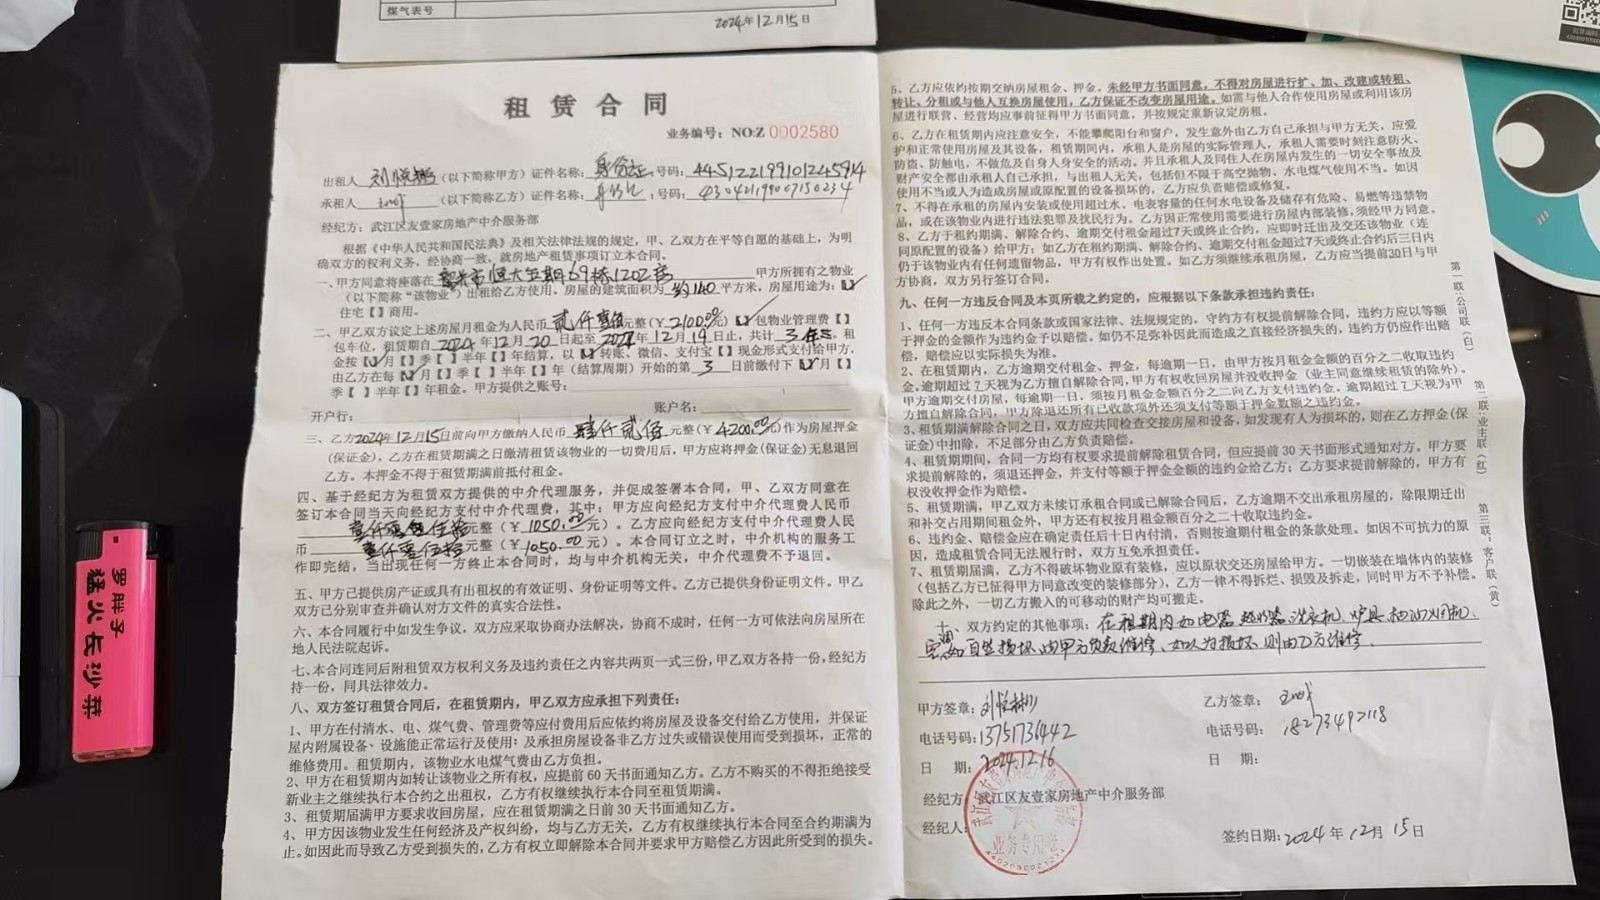 煤气表号
2024年12月15日
租赁合同
业务编号：NO:Z 0002580
出租人 （以下简称甲方）证件名称：身份证 号码：
承租人 （以下简称乙方）证件名称：身份证 ；号码：
经纪方：武江区友壹家房地产中介服务部
根据《中华人民共和国民法典》及相关法律法规的规定，甲、乙双方在平等自愿的基础上，为明
确双方的权利义务，经协商一致，就房地产租赁事项订立本合同。
一、甲方同意将座落在 恒大五期69栋1202房 甲方所拥有之物业
（以下简称“该物业”）出租给乙方使用。房屋的建筑面积为 约140 平方米，房屋用途为：【✓】
住宅【 】商用。
二、甲乙双方议定上述房屋月租金为人民币 贰仟壹佰 元整（￥2100.00元）【✓】包物业管理费【 】
包车位，租赁期自2024年12月20日起至 年12月19日止，共计 3年 。租
金按【✓】月【 】季【 】半年【 】年结算，以【✓】转账、微信、支付宝【 】现金形式支付给甲方，
由乙方在每【✓】月【 】季【 】半年【 】年（结算周期）开始的第 3 日前缴付下【✓】月【 】
季【 】半年【 】年租金。甲方提供之账号：
开户行： 账户名：
三、乙方2024年12月15日前向甲方缴纳人民币 肆仟贰佰 元整（￥4200.00元）作为房屋押金
（保证金），乙方在租赁期满之日缴清租赁该物业的一切费用后，甲方应将押金（保证金）无息退回
乙方。本押金不得于租赁期满前抵付租金。
四、基于经纪方为租赁双方提供的中介代理服务，并促成签署本合同，甲、乙双方同意在
签订本合同当天向经纪方支付中介代理费，其中：甲方应向经纪方支付中介代理费人民币
元整（￥1050.00元）。乙方应向经纪方支付中介代理费人民
币 壹仟零伍拾 元整（￥1050.00元）。本合同订立之时，中介机构的服务工
作即完结，当出现任何一方终止本合同时，均与中介机构无关，中介代理费不予退回。
五、甲方已提供房产证或具有出租权的有效证明、身份证明等文件。乙方已提供身份证明文件。甲乙
双方已分别审查并确认对方文件的真实合法性。
六、本合同履行中如发生争议，双方应采取协商办法解决，协商不成时，任何一方可依法向房屋所在
地人民法院起诉。
七、本合同连同后附租赁双方权利义务及违约责任之内容共两页一式三份，甲乙双方各持一份，经纪方
持一份，同具法律效力。
八、双方签订租赁合同后，在租赁期内，甲乙双方应承担下列责任：
1、甲方在付清水、电、煤气费、管理费等应付费用后应依约将房屋及设备交付给乙方使用，并保证
屋内附属设备、设施能正常运行及使用；及承担房屋设备非乙方过失或错误使用而受到损坏，正常的
维修费用。租赁期内，该物业水电煤气费由乙方负担。
2、甲方在租赁期内如转让该物业之所有权，应提前60天书面通知乙方。乙方不购买的不得拒绝接受
新业主之继续执行本合约之出租权，乙方有权继续执行本合同至租赁期满。
3、租赁期届满甲方要求收回房屋，应在租赁期满之日前30天书面通知乙方。
4、甲方因该物业发生任何经济及产权纠纷，均与乙方无关，乙方有权继续执行本合同至合约期满为
止。如因此而导致乙方受到损失的，乙方有权立即解除本合同并要求甲方赔偿乙方因此所受到的损失。
5、乙方应依约按期交纳房屋租金、押金。未经甲方书面同意，不得对房屋进行扩、加、改建或转租、
转让、分租或与他人互换房屋使用，乙方保证不改变房屋用途。如需与他人合作使用房屋或利用该房
屋进行联营、经营均应事前征得甲方书面同意，并按规定重新议定房租。
6、乙方在租赁期内应注意安全，不能攀爬阳台和窗户，发生意外由乙方自己承担与甲方无关，应爱
护和正常使用房屋及其设备，租赁期间内，承租人是房屋的实际管理人，承租人需要时刻注意防火、
防盗、防触电，不做危及自身人身安全的活动，并且承租人及同住人在房屋内发生的一切安全事故及
财产安全都由承租人自己承担，与出租人无关，包括但不限于高空抛物、水电煤气使用不当。如因
使用不当或人为造成房屋或原配置的设备损坏的，乙方应负责赔偿或修复。
7、不得在承租的房屋内安装或使用超过水、电表容量的任何水电设备及储存有危险、易燃等违禁物
品，或在该物业内进行违法犯罪及扰民行为。乙方因正常使用需要进行房屋内部装修，须经甲方同意。
8、乙方于租约期满、解除合约、逾期交付租金超过7天或终止合约，应即时迁出及交还该物业（连
同原配置的设备）给甲方；如乙方在租约期满、解除合约、逾期交付租金超过7天或终止合约后三日内
仍于该物业内有任何遗留物品，甲方有权作出处置。如乙方须继续承租房屋，乙方应当提前30日与甲
方协商，双方另行签订合同。
九、任何一方违反合同及本页所载之约定的，应根据以下条款承担违约责任：
1、任何一方违反本合同条款或国家法律、法规规定的，守约方有权提前解除合同，违约方应以等额
于押金的金额作为违约金予以赔偿。如仍不足弥补因此而造成之直接经济损失的，违约方仍应作出赔
偿，赔偿应以实际损失为准。
2、在租赁期内，乙方逾期交付租金、押金，每逾期一日，由甲方按月租金金额的百分之二收取违约
金。逾期超过7天视为乙方擅自解除合同，甲方有权收回房屋并没收押金（业主同意继续租赁的除外）。
甲方逾期交付房屋，每逾期一日，须按月租金金额百分之二向乙方支付违约金。逾期超过7天视为甲
方擅自解除合同，甲方除退还所有已收款项外还须支付等额于押金数额之违约金。
3、租赁期满解除合同之日，双方应共同检查交接房屋和设备，如发现有人为损坏的，则在乙方押金（保
证金）中扣除，不足部分由乙方负责赔偿。
4、租赁期期间，合同一方均有权要求提前解除租赁合同，但应提前30天书面形式通知对方。甲方要
求提前解除的，须退还押金，并支付等额于押金金额的违约金给乙方；乙方要求提前解除的，甲方有
权没收押金作为赔偿。
5、租赁期满，甲乙双方未续订承租合同或已解除合同后，乙方逾期不交出承租房屋的，除限期迁出
和补交占用期间租金外，甲方还有权按月租金额百分之二十收取违约金。
6、违约金、赔偿金应在确定责任后十日内付清，否则按逾期付租金的条款处理。如因不可抗力的原
因，造成租赁合同无法履行时，双方互免承担责任。
7、租赁期届满，乙方不得破坏物业原有装修，应以原状交还房屋给甲方。一切嵌装在墙体内的装修
（包括乙方已征得甲方同意改变的装修部分），乙方一律不得拆烂、损毁及拆走，同时甲方不予补偿。
除此之外，一切乙方搬入的可移动的财产均可搬走。
十、双方约定的其他事项：在租期内如电器，热水器，洗衣机、炉具，抽油烟机、
空调如自然损坏由甲方负责维修、如人为损坏，则由乙方维修。
甲方签章： 乙方签章：
电话号码：13751736442 电话号码：18273492118
日 期：2024.12.16 日 期：
经纪方：武江区友壹家房地产中介服务部
经纪人：
业务专用章
签约日期：2024年12月15日
第一联：公司联（白）
第二联：业主联（红）
第三联：客户联（黄）
罗胖子
猛火长沙菜